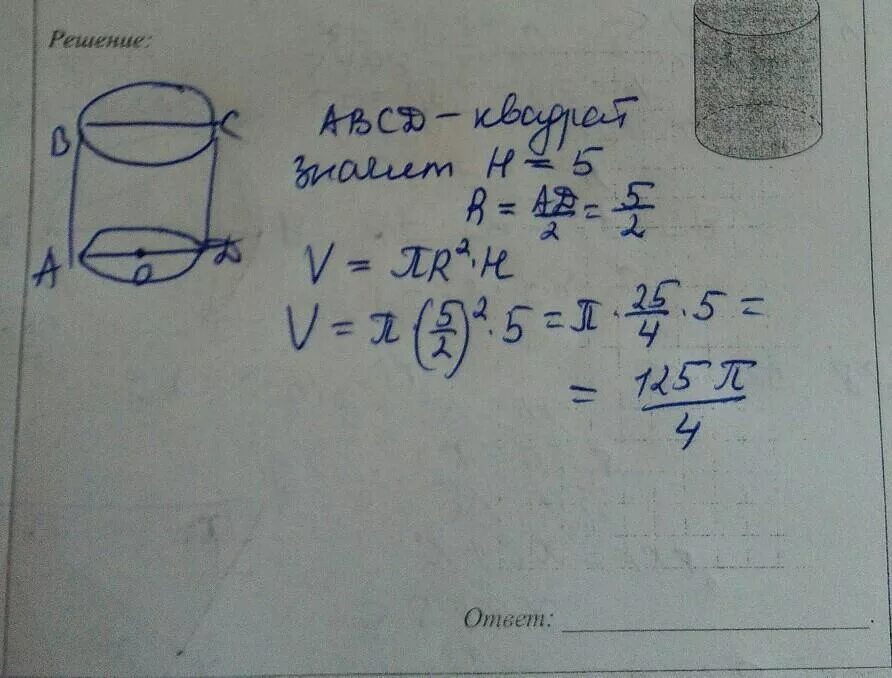 Решение:
B C
A O D
ABCD – квадрат
значит H = 5
R = AD/2 = 5/2
V = πR²·H
V = π(5/2)²·5 = π·25/4·5 =
= 125π/4
Ответ: